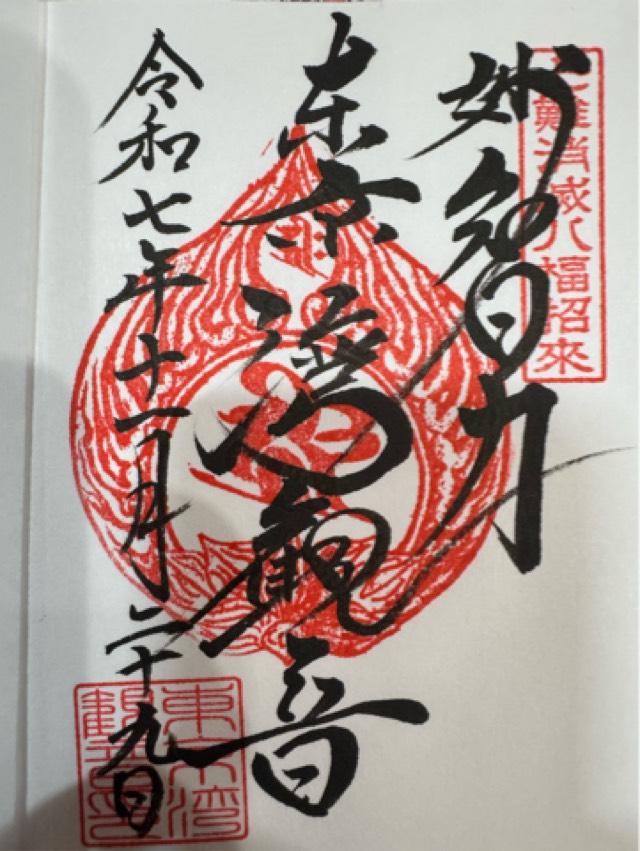 七難消滅八福招来
妙智力
東京湾観音
令和七年十一月二十九日
東京湾
観音